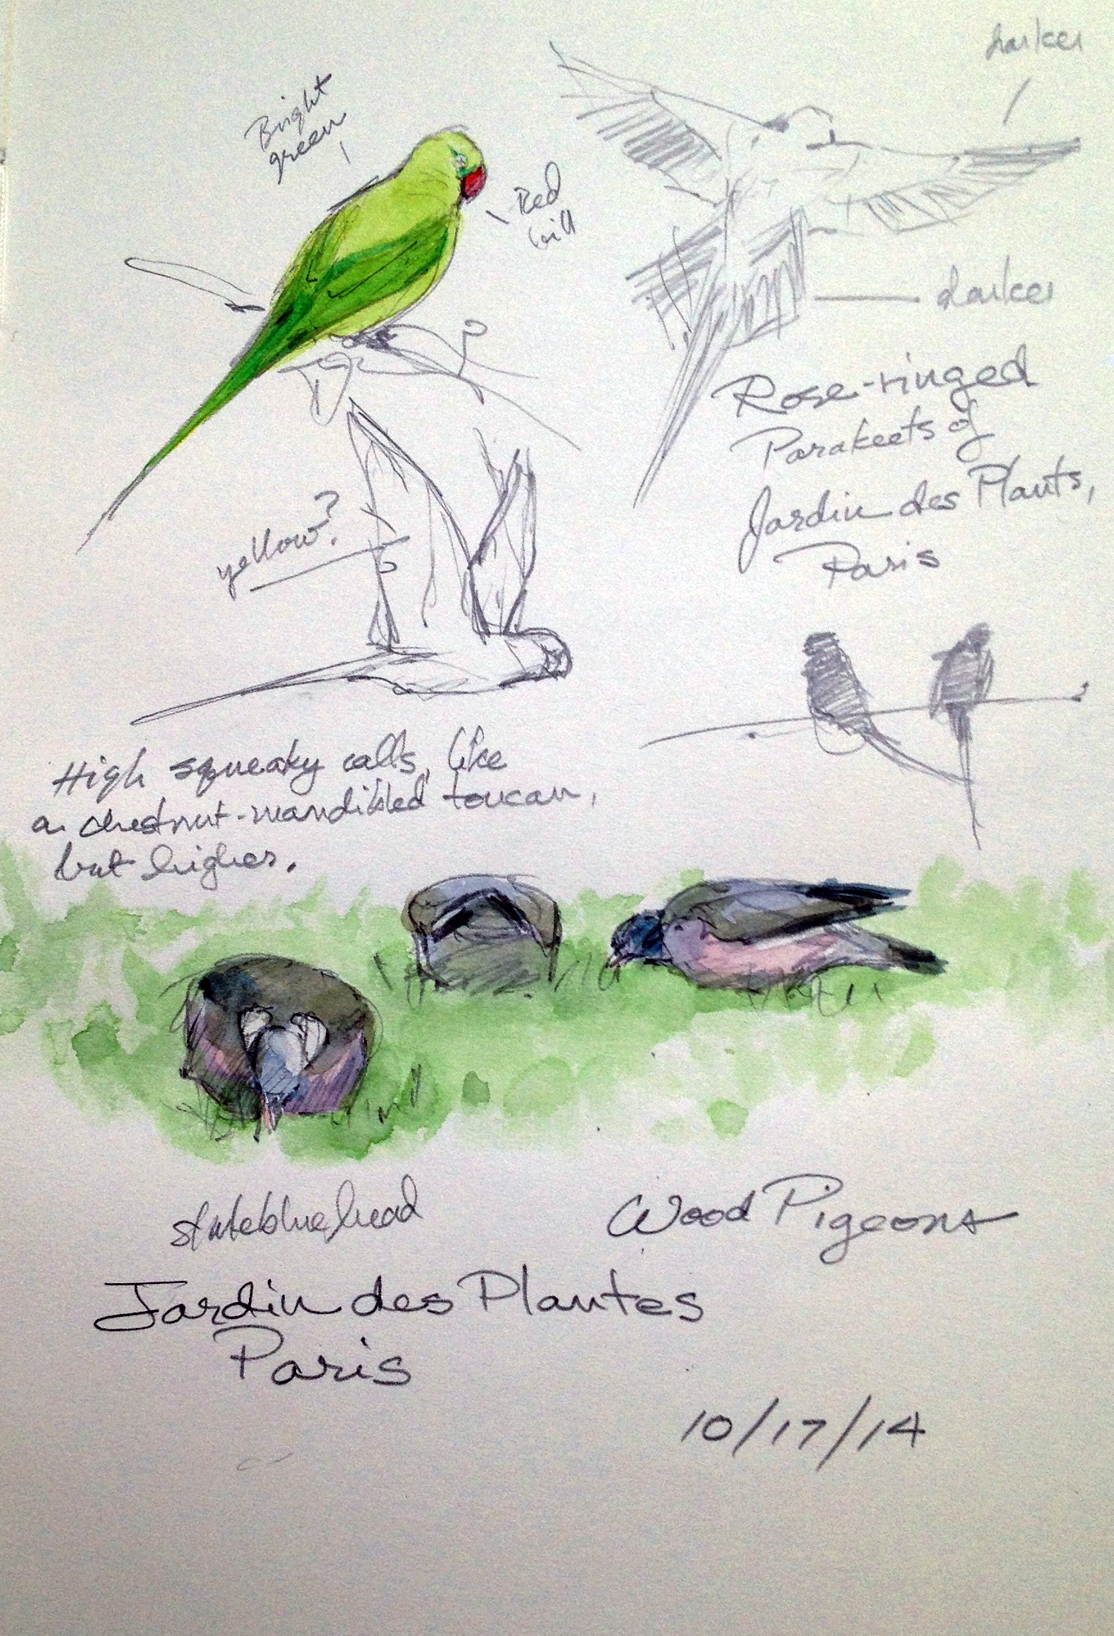 darker
Bright
green
Red
bill
darker
Rose-ringed
Parakeets of
Jardin des Plants,
Paris
yellow?
High squeaky calls, like
a chestnut-mandibled toucan,
but higher.
slateblue head
Wood Pigeons
Jardin des Plantes
Paris
10/17/14